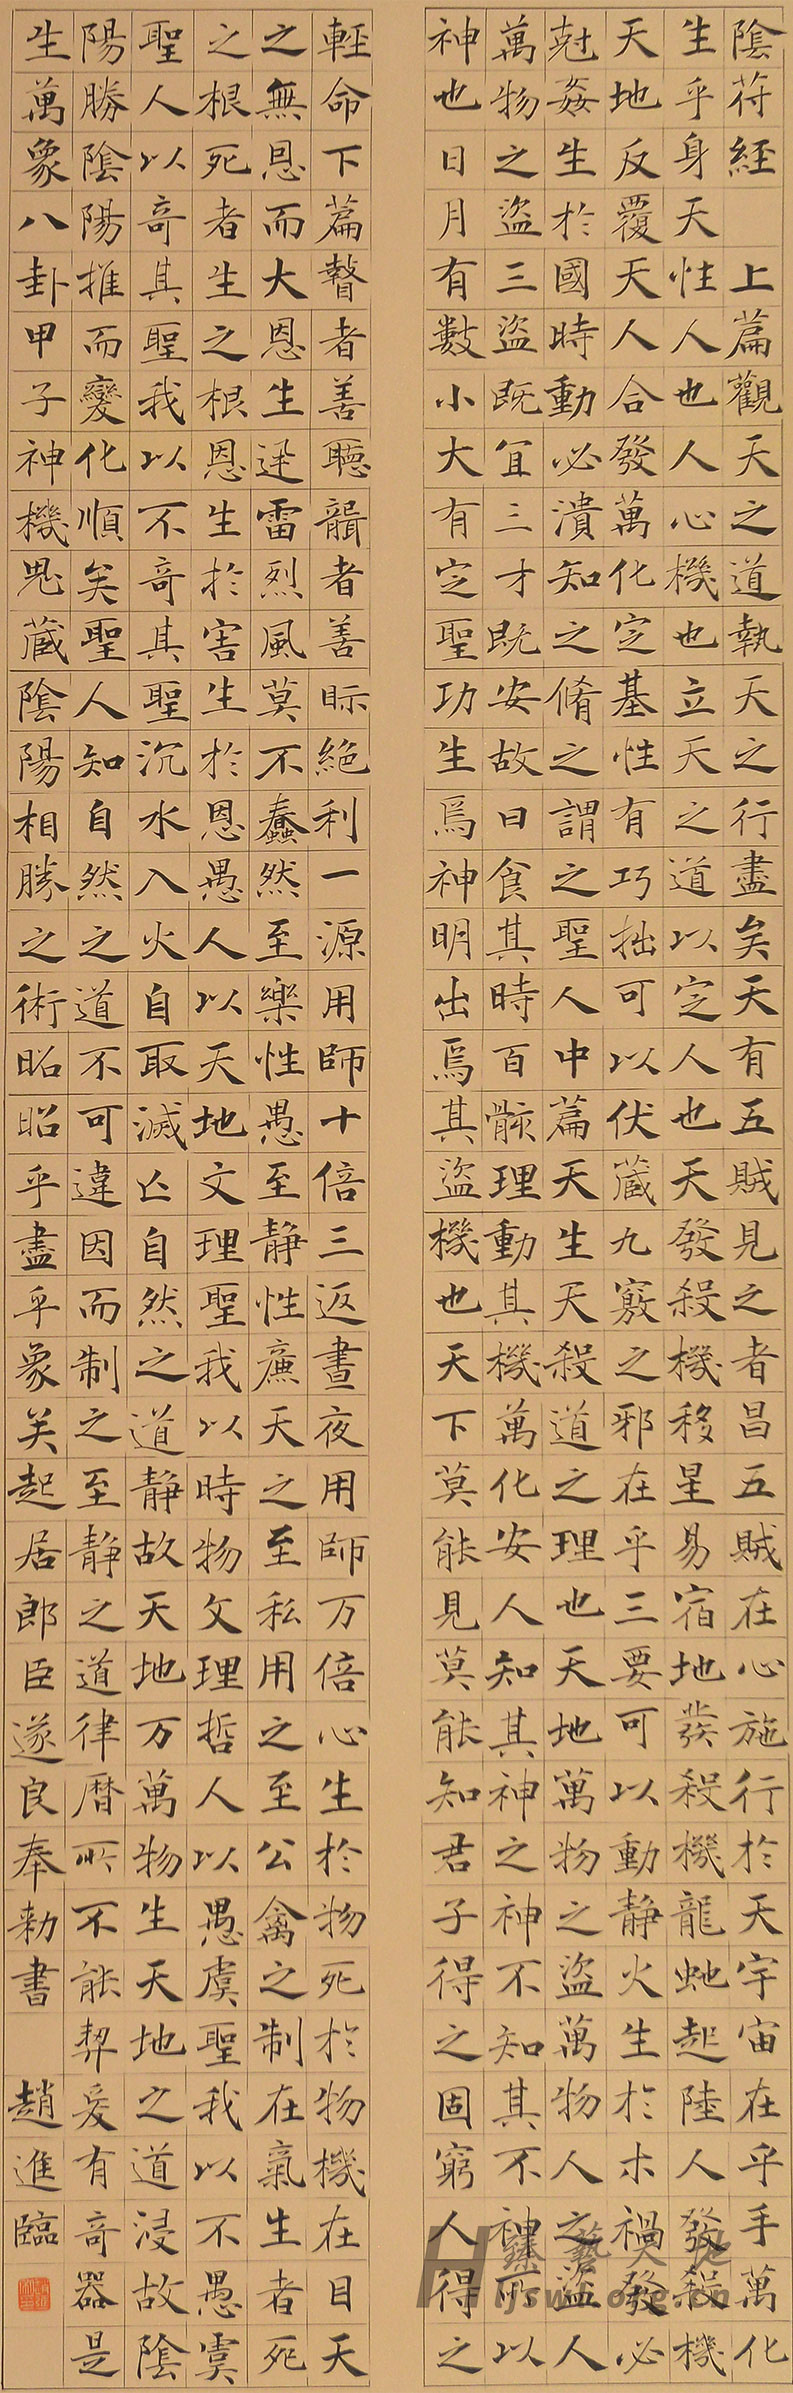 陰符經 上篇觀天之道執天之行盡矣天有五賊見之者昌五賊在心施行於天宇宙在乎手萬化
生乎身天性人也人心機也立天之道以定人也天發殺機移星易宿地發殺機龍虵起陸人發殺機
天地反覆天人合發萬化定基性有巧拙可以伏藏九竅之邪在乎三要可以動静火生於木禍發必
尅姦生於國時動必潰知之脩之謂之聖人中篇天生天殺道之理也天地萬物之盜萬物人之盜人
萬物之盜三盜既宜三才既安故曰食其時百骸理動其機萬化安人知其神之神不知其不神所以
神也日月有數小大有定聖功生焉神明出焉其盜機也天下莫能見莫能知君子得之固窮人得之
輕命下篇瞽者善聴聾者善眎絶利一源用師十倍三返晝夜用師万倍心生於物死於物機在目天
之無恩而大恩生迅雷烈風莫不蠢然至樂性愚至静性廉天之至私用之至公禽之制在氣生者死
之根死者生之根恩生於害生於恩愚人以天地文理聖我以時物文理哲人以愚虞聖我以不愚虞
聖人以奇其聖我以不奇其聖沉水入火自取滅亡自然之道静故天地万萬物生天地之道浸故陰
陽勝陰陽推而變化順矣聖人知自然之道不可違因而制之至静之道律曆所不能契爰有奇器是
生萬象八卦甲子神機鬼藏陰陽相勝之術昭昭乎盡乎象矣起居郎臣遂良奉勅書 趙進臨